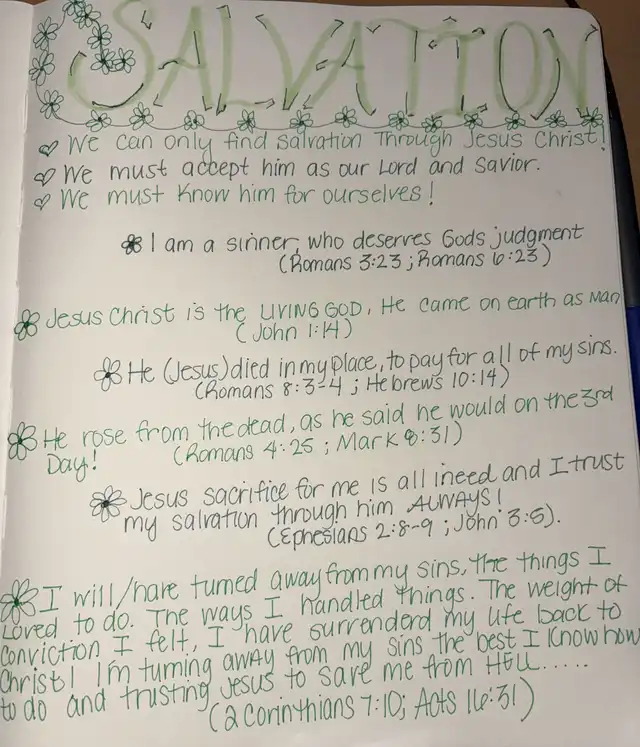 SALVATION
We can only find salvation Through Jesus Christ!
We must accept him as our Lord and Savior.
We must Know him for ourselves!
I am a sinner, who deserves Gods judgment
(Romans 3:23 ; Romans 6:23)
Jesus Christ is the LIVING GOD, He came on earth as Man
(John 1:14)
He (Jesus) died in my place, to pay for all of my sins.
(Romans 8:3-4 ; Hebrews 10:14)
He rose from the dead, as he said he would on the 3rd
Day! (Romans 4:25 ; Mark 8:31)
Jesus sacrifice for me is all i need and I trust
my salvation through him ALWAYS!
(Ephesians 2:8-9 ; John 3:5).
I will/have turned away from my sins, the things I
Loved to do. The ways I handled things. The weight of
conviction I felt, I have surrenderd my life back to
Christ! I'm turning away from my sins the best I Know how
to do and trusting Jesus to save me from HELL.....
(2 Corinthians 7:10; Acts 16:31)